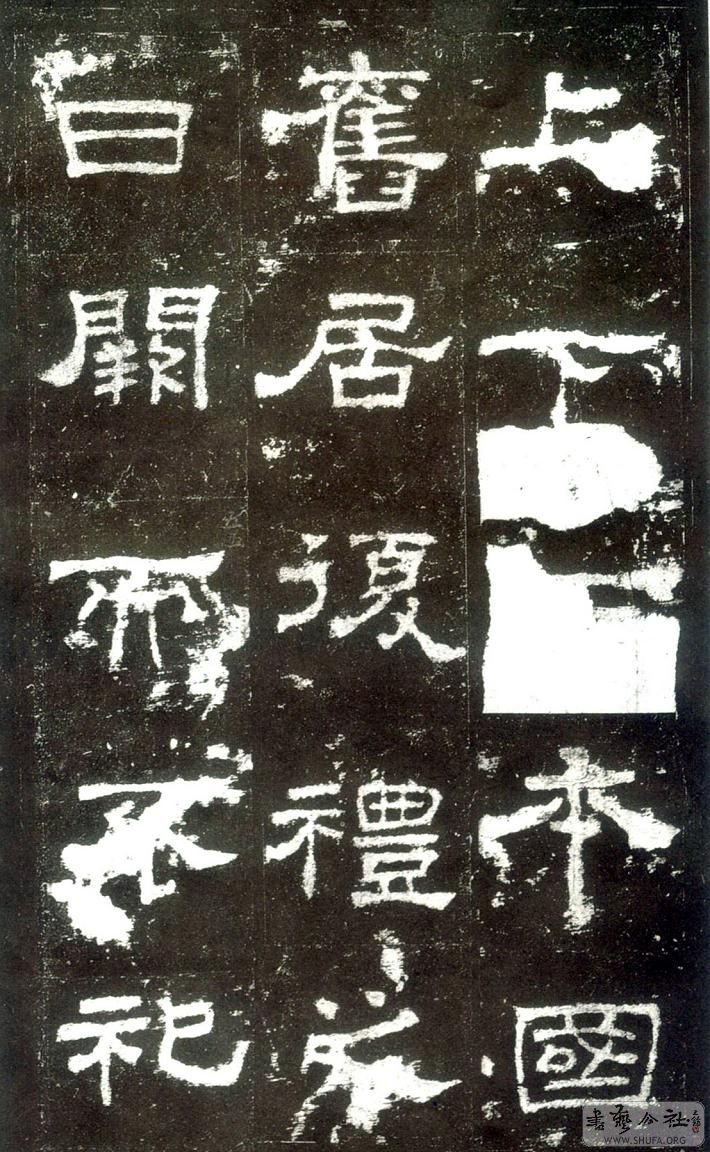 上下本國
舊居復禮之
日闕而不祀
書藝公社
WWW.SHUFA.ORG